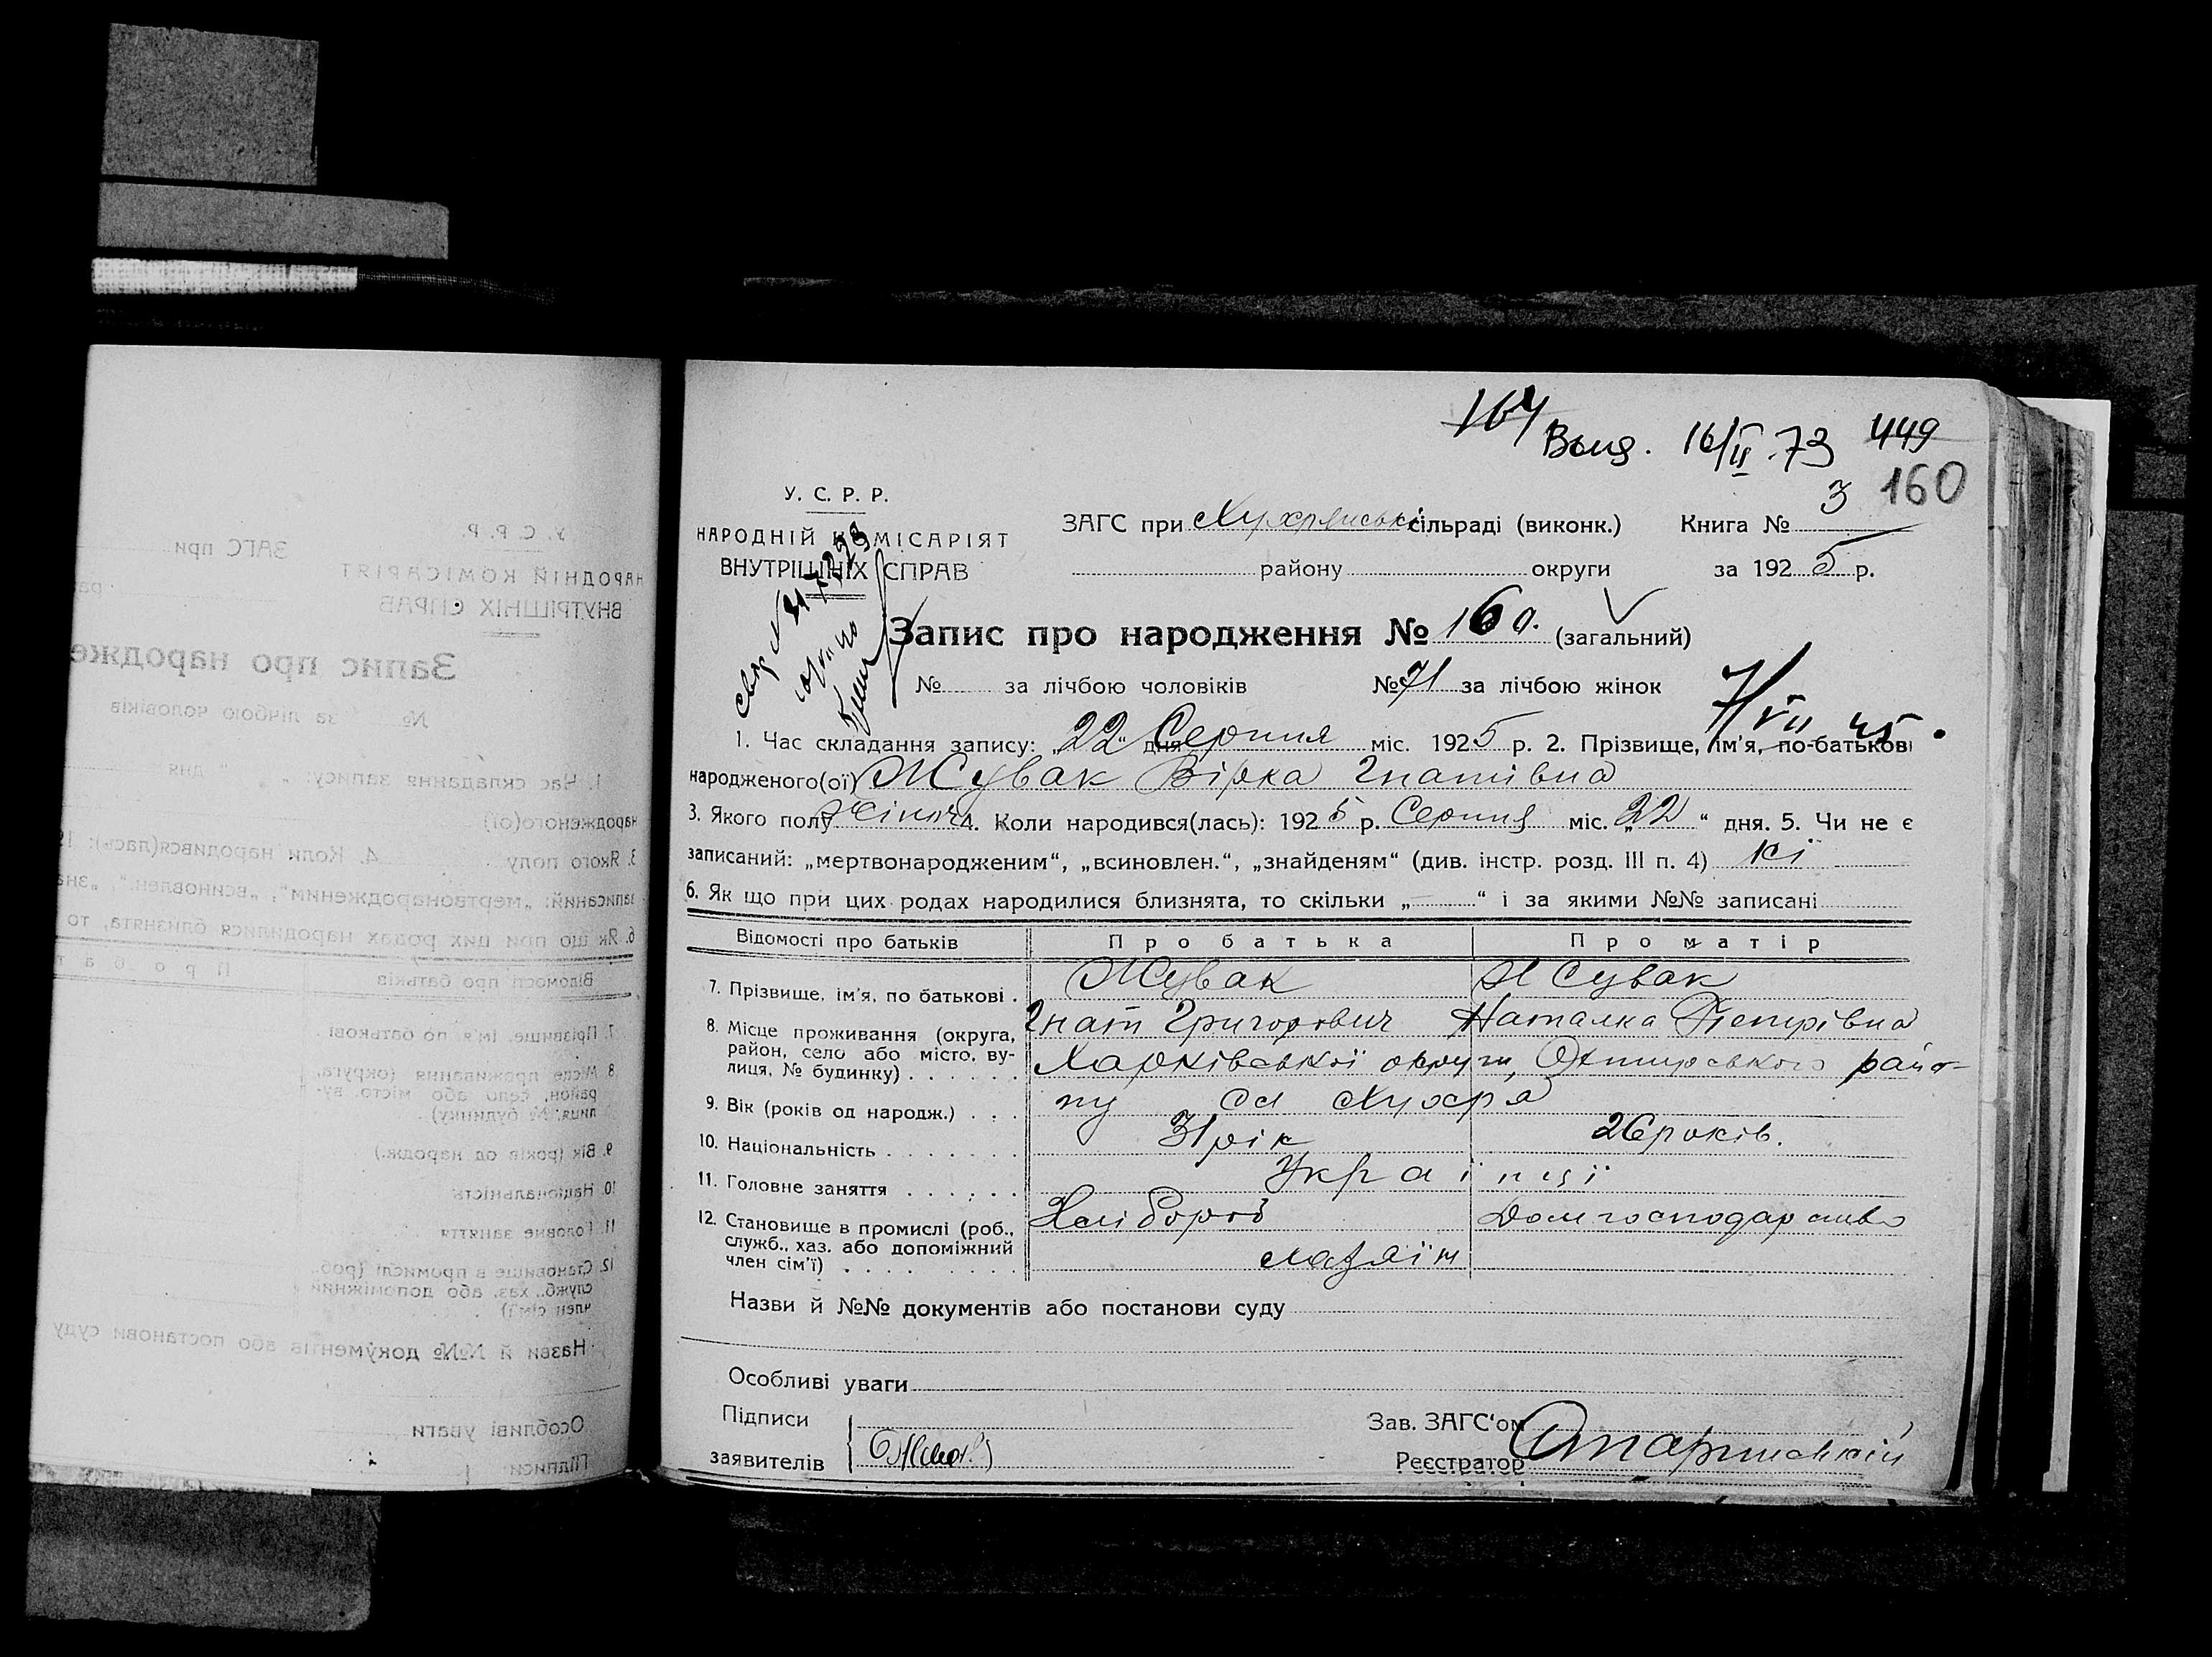 164
Выд. 16/II.73 449
160
У. С. Р. Р.
НАРОДНІЙ КОМІСАРІЯТ
ВНУТРІШНІХ СПРАВ
ЗАГС при Хухрянській сільраді (виконк.) Книга № 3
району округи за 1925 р.
Запис про народження № 160. (загальний)
№ за лічбою чоловіків № 71 за лічбою жінок
7/VII 45.
1. Час складання запису: „22“ дня Серпня міс. 1925 р. 2. Прізвище, ім'я, по-батькові
народженого(ої) Жувак Вірка Гнатівна
3. Якого полу жіноч. 4. Коли народився(лась): 1925 р. Серпня міс. „22“ дня. 5. Чи не є
записаний: „мертвонародженим“, „всиновлен.“, „знайденям“ (див. інстр. розд. III п. 4) ні
6. Як що при цих родах народилися близнята, то скільки „ “ і за якими №№ записані
Відомості про батьків Про батька Про матір
7. Прізвище, ім'я, по батькові . Жувак Жувак
Гнат Григорович Наталка Петрівна
8. Місце проживання (округа, район, село або місто, вулиця, № будинку) . . . . . . Харківської округи, Охтирського райо-
ну сл Хухря
9. Вік (років од народж.) . . . 31 рік 26 років.
10. Національність . . . . . . . Українці
11. Головне заняття . . . . . . Хлібороб Домгосподарство
12. Становище в промислі (роб., служб., хаз. або допоміжний член сім'ї) . . . . . . . . хазяїн
Назви й №№ документів або постанови суду
Особливі уваги
Підписи
заявителів
Зав. ЗАГС'ом
Реєстратор